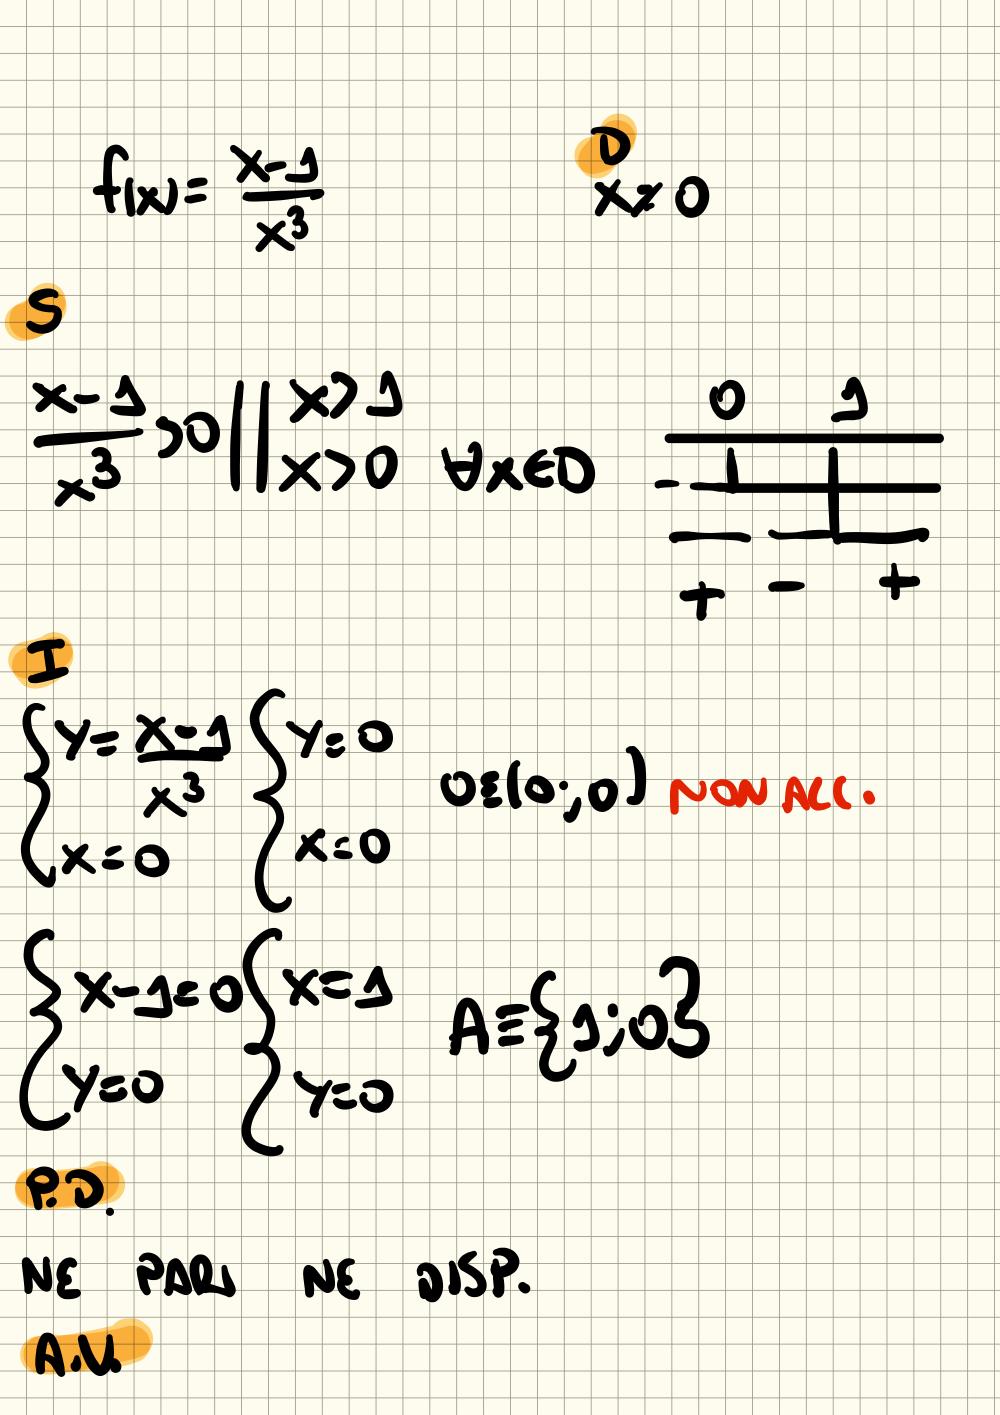 D
f(x)= x-1/x³ x≠0
S
x-1/x³ >0 || x>1
x>0 ∀x∈D
0 1
+ - +
I
{ y= x-1/x³ { y=0
x=0 x=0
O≡(0;0) NON ACC.
{ x-1=0 { x=1
y=0 y=0
A≡{1;0}
P.D.
NE PARI NE DISP.
A.V.